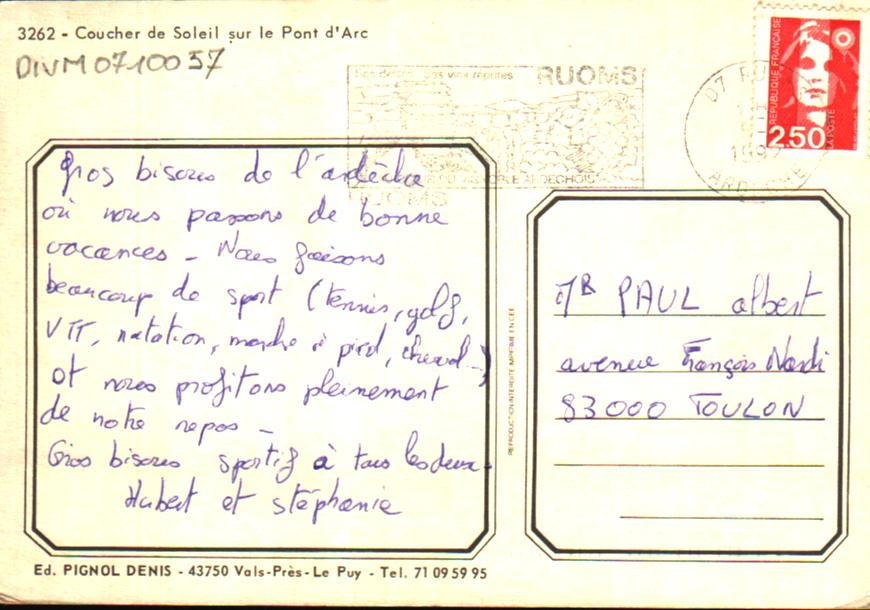 3262 - Coucher de Soleil sur le Pont d'Arc
DIVM0710037
RUOMS
07 RU
1992
ARDECHE
REPUBLIQUE FRANÇAISE
LA POSTE
2.50
RUOMS
Gros bisous de l'ardèche
où nous passons de bonne
vacances - Nous faisons
beaucoup de sport (tennis, golf,
VTT, natation, marche à pied, cheval...)
et nous profitons pleinement
de notre repos -
Gros bisous sportif à tous les deux.
Hubert et stéphanie
REPRODUCTION INTERDITE IMPRIME EN CEE
MR PAUL albert
avenue François Nardi
83000 TOULON
Ed. PIGNOL DENIS - 43750 Vals-Près-Le Puy - Tel. 71 09 59 95